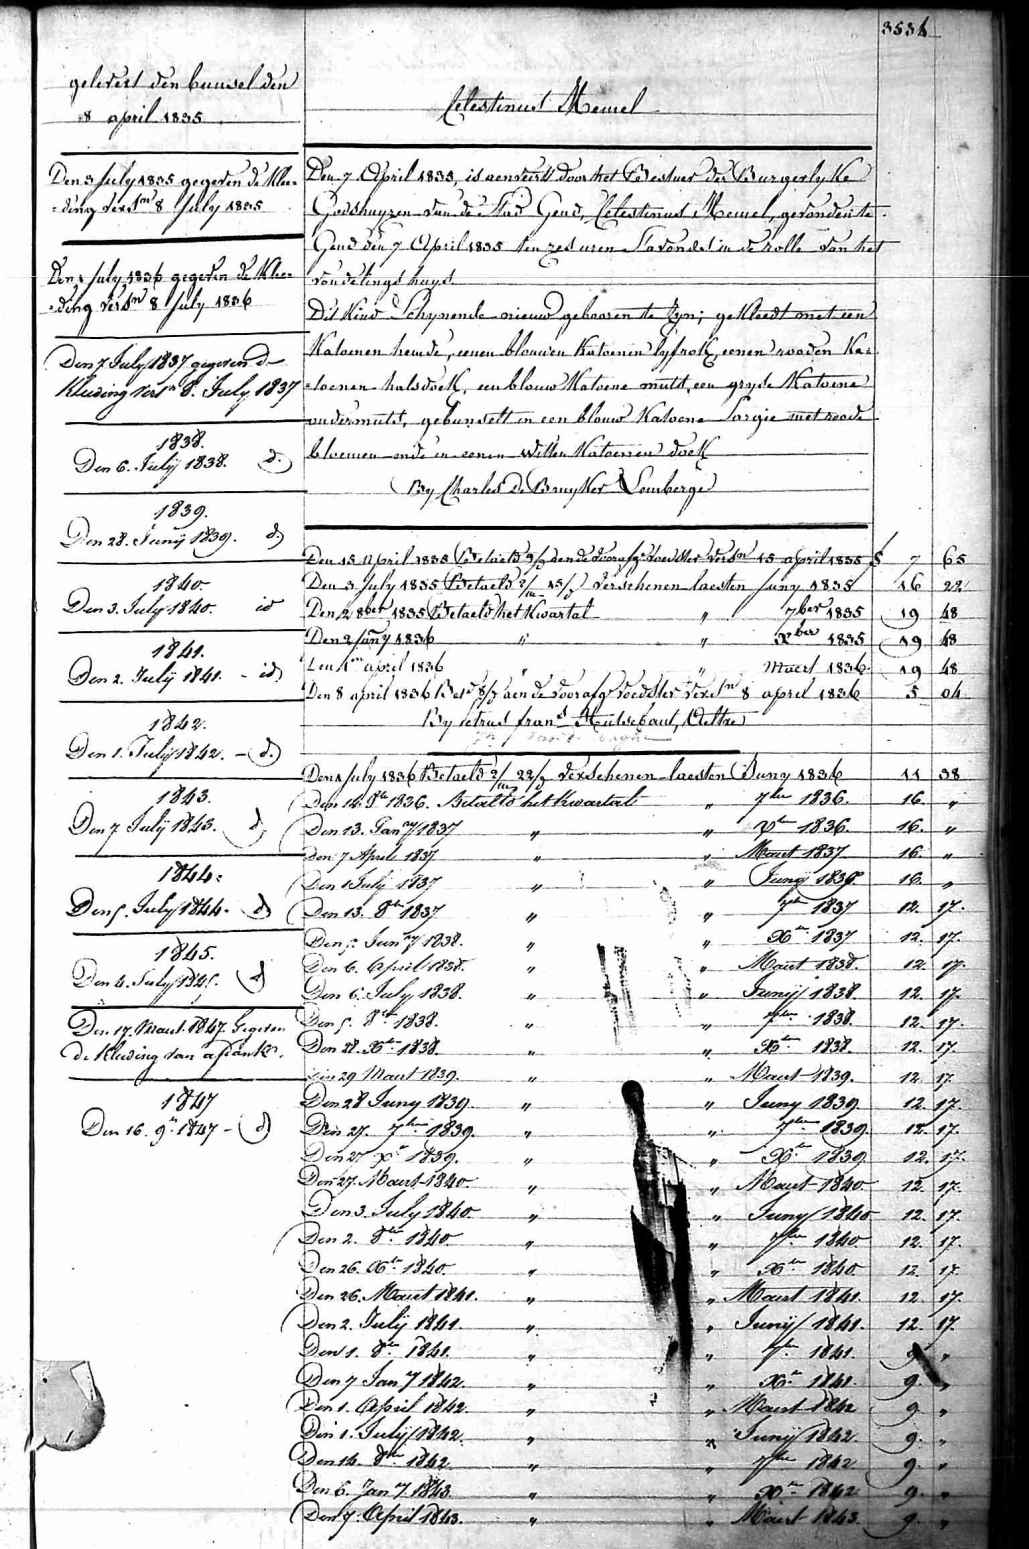 3534
gelevert den bunsel den
8 april 1835
Celestinus Memel
Den 3 July 1835 gegeven de Klee-
=ding vers.m 8 July 1835
Den 1 July 1836 gegeven de Klee-
=ding vers.n 8 July 1836
Den 7 July 1837 gegeven d
Kleeding vers.n 8. July 1837
1838.
Den 6. Julij 1838. d.o
1839.
Den 28. Junij 1839. d.o
1840.
Den 3. July 1840. id
1841.
Den 2. Julij 1841. - id
1842.
Den 1. Julij 1842. - d.o
1843.
Den 7 Julij 1843. d.o
1844.
Den 5. July 1844. d.o
1845.
Den 4. July 1845. d.o
Den 17. Maart 1847. Gegeven
de Kleeding van
1847
Den 16. 9.r 1847 - d.o
Den 7 April 1835, is aenveert door het Bestuer der Burgerlyke
Godshuyzen van de Stad Gend, Celestinus Memel, gevonden te
Gend den 7 April 1835 ten zes uren S'avonds in de rolle van het
vondelings huys
Dit Kind Schynende nieuw gebooren te Zyn; gekleedt met een
Katoenen hemde, eenen blouwen Katoenen lyfrok, eenen rooden Ka-
=toenen halsdoek, een blouw Katoene muts, een gryse Katoene
ondermuts, gebunselt in een blouw Katoene Sargie met roode
bloemen ende in eenen witten Katoenen doek
By Charles De Bruyker Lemberge
Den 15 April 1835 Betaeld aen de voorafg. voedster vers.n 15 april 1835 7 65
Den 3 July 1835 Betaeld verschenen laesten Juny 1835 16 22
Den 2 8ber 1835 Betaeld het Kwartal " 7ber 1835 19 48
Den 2 Jany 1836 " " Xber 1835 19 48
Den 1.n april 1836 " " Maert 1836 19 48
Den 8 april 1836 Bet.d aen de voorafg. voedster vers.n 8 april 1836 5 04
By Petrus frans Hulsebaut, Oeltre
Den 1 July 1836 Betaeld verschenen laesten Juny 1836 11 38
Den 14. 8.br 1836. Betaeld het Kwartal " 7ber 1836. 16. "
Den 13. Jan.y 1837 " " X.br 1836. 16. "
Den 7 April 1837 " " Maart 1837 16. "
Den 1 July 1837 " " Junij 1837. 16. "
Den 13. 8.br 1837 " " 7.br 1837 12. 17.
Den 5. Jan.y 1838. " " X.br 1837 12. 17.
Den 6. April 1838. " " Maart 1838. 12. 17.
Den 6. July 1838. " " Junij 1838. 12. 17.
Den 5. 8.br 1838. " " 7.br 1838. 12. 17.
Den 28. X.br 1838. " " X.br 1838. 12. 17.
Den 29 Maart 1839. " " Maart 1839. 12 17.
Den 28 Juny 1839. " " Juny 1839. 12. 17.
Den 27. 7.br 1839. " " 7.br 1839 12. 17.
Den 27 X.r 1839. " " X.br 1839 12. 17.
Den 27. Maart 1840. " " Maart 1840 12. 17.
Den 3. July 1840. " " Juny 1840 12. 17.
Den 2. 8.br 1840. " " 7.br 1840. 12. 17.
Den 26. X.br 1840. " " X.br 1840. 12. 17.
Den 26. Maart 1841. " " Maart 1841. 12. 17.
Den 2. Julij 1841. " " Junij 1841. 12. 17.
Den 1. 8.br 1841. " " 7.br 1841. 9. "
Den 7 Jan.y 1842. " " X.br 1841. 9. "
Den 1. April 1842. " " Maart 1842 9. "
Den 1. Julij 1842. " " Junij 1842 9. "
Den 14. 8.br 1842. " " 7.br 1842 9. "
Den 6. Jan.y 1843. " " X.br 1842 9. "
Den 7. April 1843. " " Maart 1843. 9. "